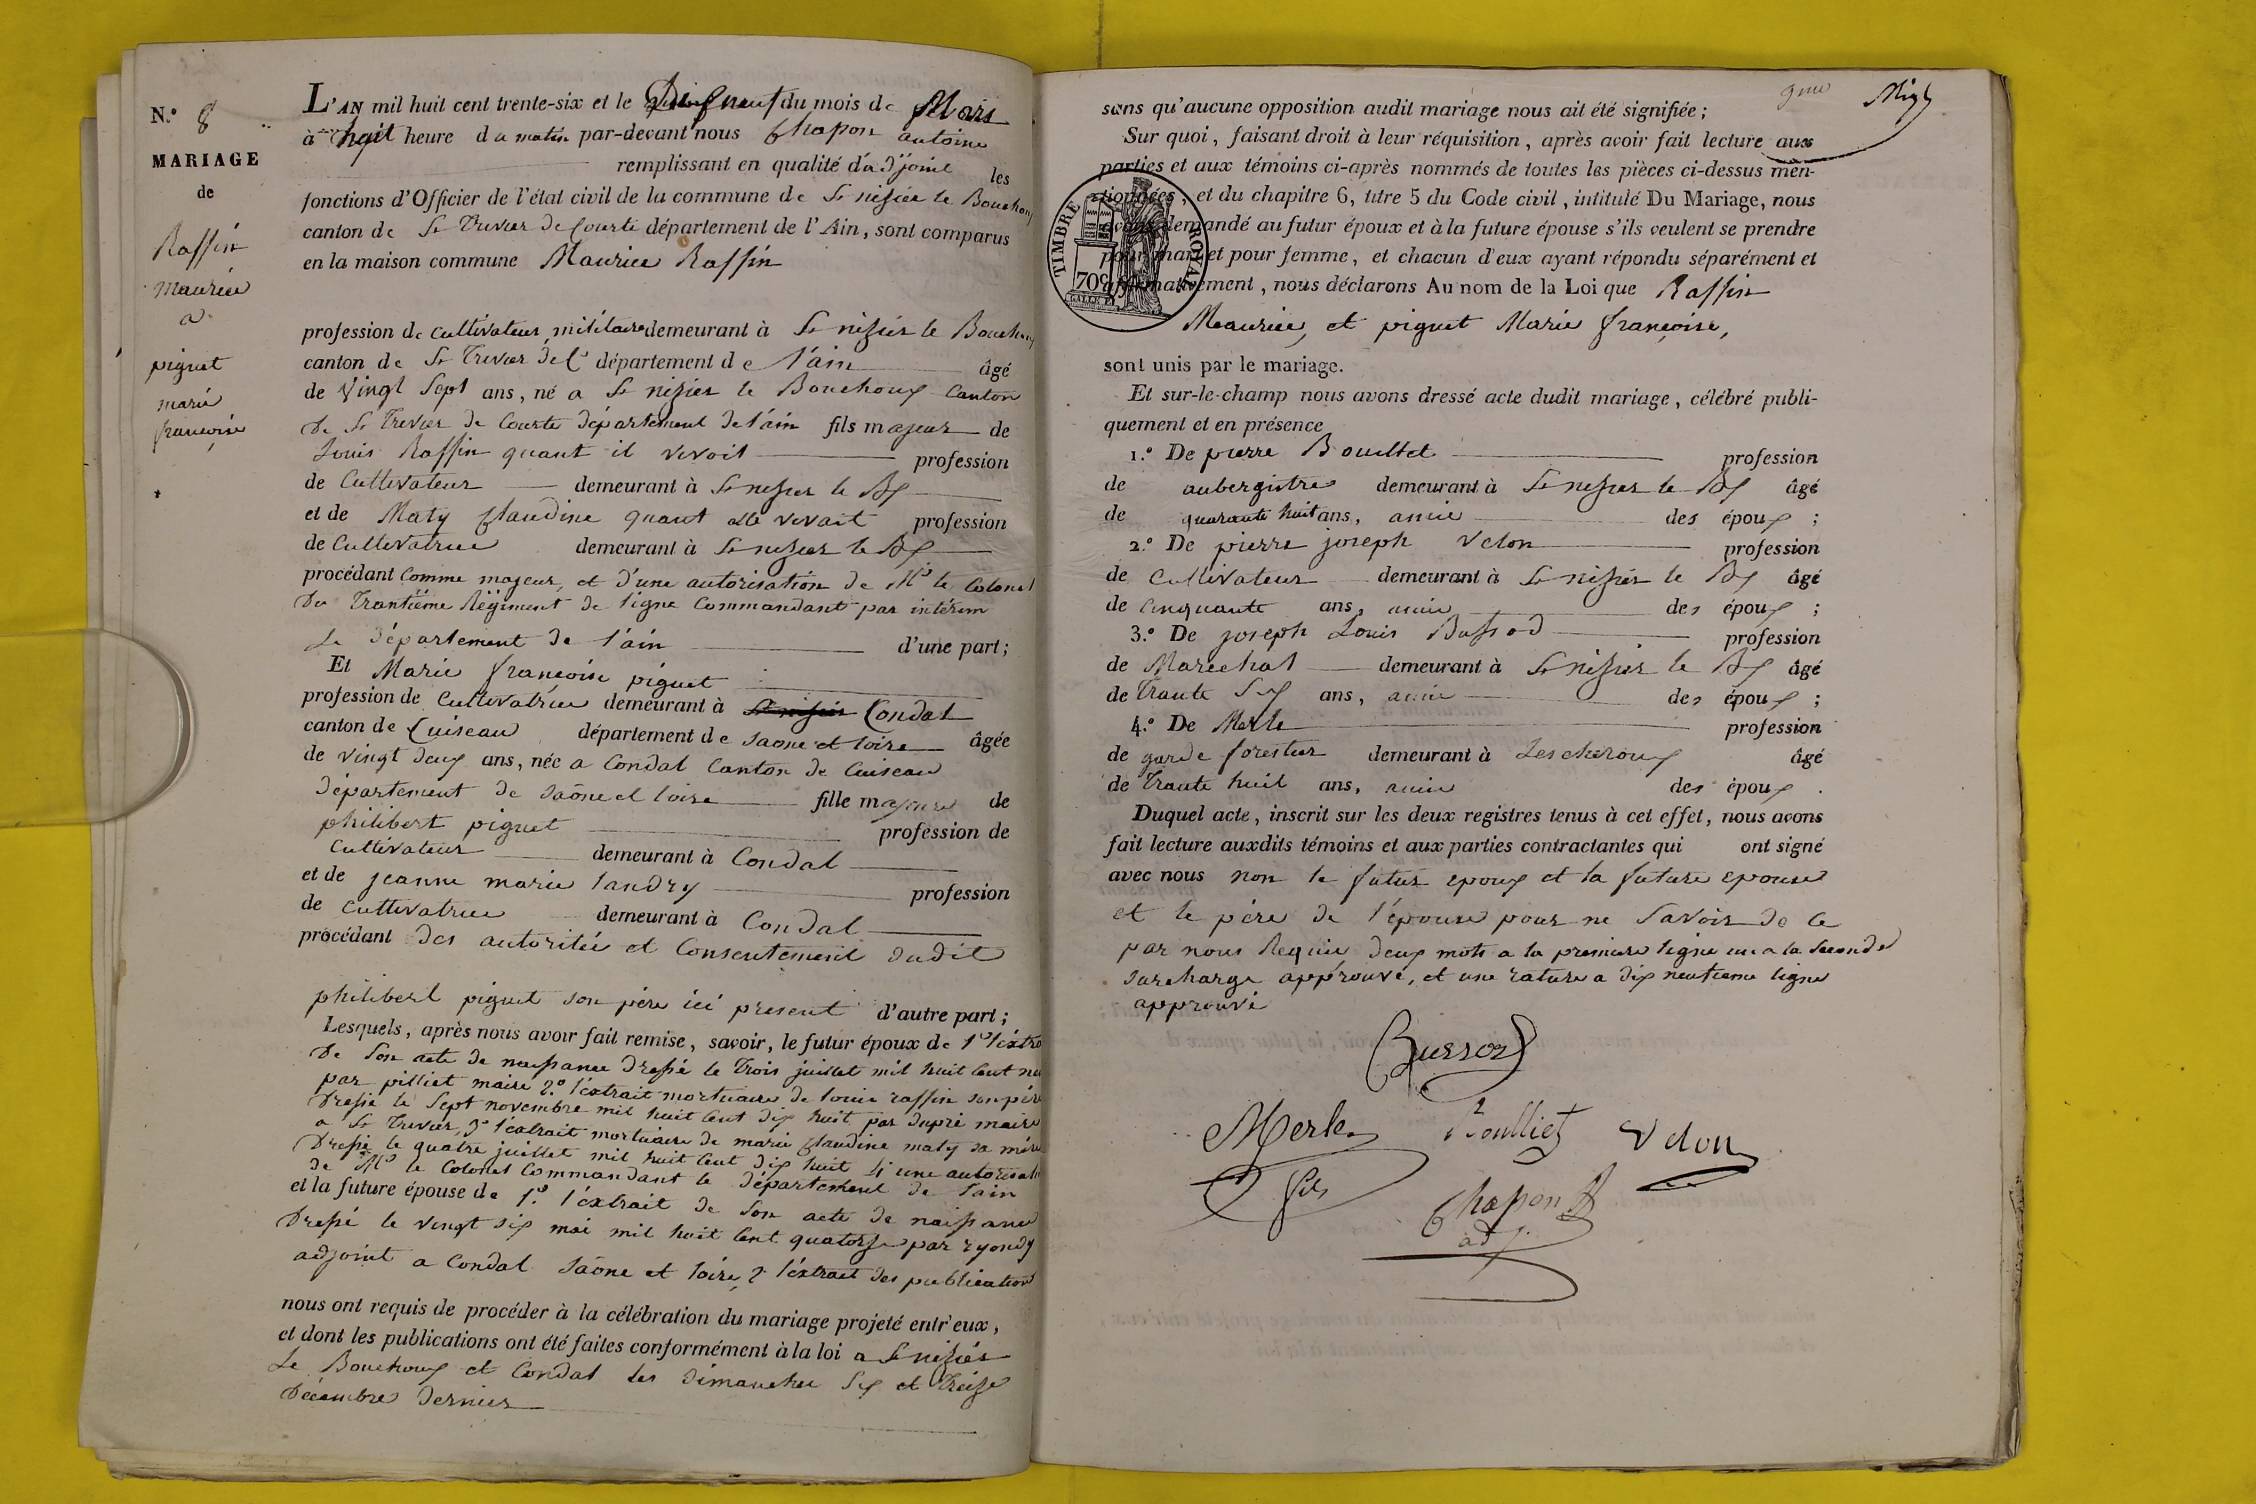 N.° 8
MARIAGE
de
Raffin
maurice
a
piguet
marie
francoise
L'AN mil huit cent trente-six et le Dix neuf du mois de Mars
à huit heure du matin par-devant nous Chapon antoine
remplissant en qualité d'adjoint les
fonctions d'Officier de l'état civil de la commune de St nizier le Bouchoux
canton de St Trivier de Courte département de l'Ain, sont comparus
en la maison commune Maurice Raffin
profession de cultivateur, militaire demeurant à St nizier le Bouchoux
canton de St Trivier de C département de l'ain âgé
de vingt Sept ans, né a St nizier le Bouchoux Canton
De St Trivier de Courte département de l'ain fils majeur de
Louis Raffin quant il vivoit profession
de Cultivateur demeurant à St nizier le Bx
et de Maty Claudine quant elle vivait profession
de Cultivatrice demeurant à St nizier le Bx
procédant Comme majeur, et d'une autorisation de Mr le Colonel
Du Trantième Régiment de ligne Commandant par intérim
Le Département de l'ain d'une part;
Et Marie françoise piguet
profession de Cultivatrice demeurant à St nizier Condal
canton de Cuiseau département de Saone et loire âgée
de vingt deux ans, née a Condal Canton de Cuiseau
Département de Saône et loire fille majeure de
philibert piguet profession de
Cultivateur demeurant à Condal
et de jeanne marie landry profession
de Cultivatrice demeurant à Condal
procédant des autorité et Consentement dudit
philibert piguet son père ici present d'autre part;
Lesquels, après nous avoir fait remise, savoir, le futur époux de 1° l'éxtra
De Son acte de naissance Dressé le Trois juillet mil huit Cent
par pilliet maire 2° l'éxtrait mortuaire de louis raffin son père
Dressé le Sept novembre mil huit Cent dix huit par dupré maire
a St Trivier, 3° l'éxtrait mortuaire de marie Claudine maty sa mère
Dressé le quatre juillet mil huit Cent dix huit 4° une autorisati
de Mr le Colonel Commandant le département de l'ain
et la future épouse de 1.° l'éxtrait de Son acte de naissance
Dressé le vingt six mai mil huit Cent quatorze par
adjoint a Condal Saône et loire, 2 l'éxtrait des publications
nous ont requis de procéder à la célébration du mariage projeté entr'eux,
et dont les publications ont été faites conformément à la loi a St nizier
Le Bouchoux et Condal les Dimanches Six et Treize
Décembre Dernier
9me
sans qu'aucune opposition audit mariage nous ait été signifiée;
Sur quoi, faisant droit à leur réquisition, après avoir fait lecture aux
parties et aux témoins ci-après nommés de toutes les pièces ci-dessus men-
tionnées, et du chapitre 6, titre 5 du Code civil, intitulé Du Mariage, nous
avons demandé au futur époux et à la future épouse s'ils veulent se prendre
pour mari et pour femme, et chacun d'eux ayant répondu séparément et
affirmativement, nous déclarons Au nom de la Loi que Raffin
Maurice, et piguet Marie françoise,
TIMBRE ROYAL
70c
sont unis par le mariage.
Et sur-le-champ nous avons dressé acte dudit mariage, célébré publi-
quement et en présence
1.° De pierre Boulliet profession
de aubergistre demeurant à St nizier le Bx âgé
de quarante huit ans, amie des époux;
2.° De pierre joseph Velon profession
de Cultivateur demeurant à St nizier le Bx âgé
de Cinquante ans, amie des époux;
3.° De joseph Louis Bussod profession
de Maréchal demeurant à St nizier le Bx âgé
de Trante Six ans, amie des époux;
4.° De Merle profession
de garde forestier demeurant à Lescheroux âgé
de Trante huit ans, amie des époux.
Duquel acte, inscrit sur les deux registres tenus à cet effet, nous avons
fait lecture auxdits témoins et aux parties contractantes qui ont signé
avec nous non le futur epoux et la future epouse
et le père de l'épouse pour ne Savoir de ce
par nous Requie deux mots a la premiere ligne un a la Seconde
Surcharge approuvé, et une rature a dix neutieme ligne
approuvé
Bussod
Merle Boulliet Velon
fils
Chapon
adj.